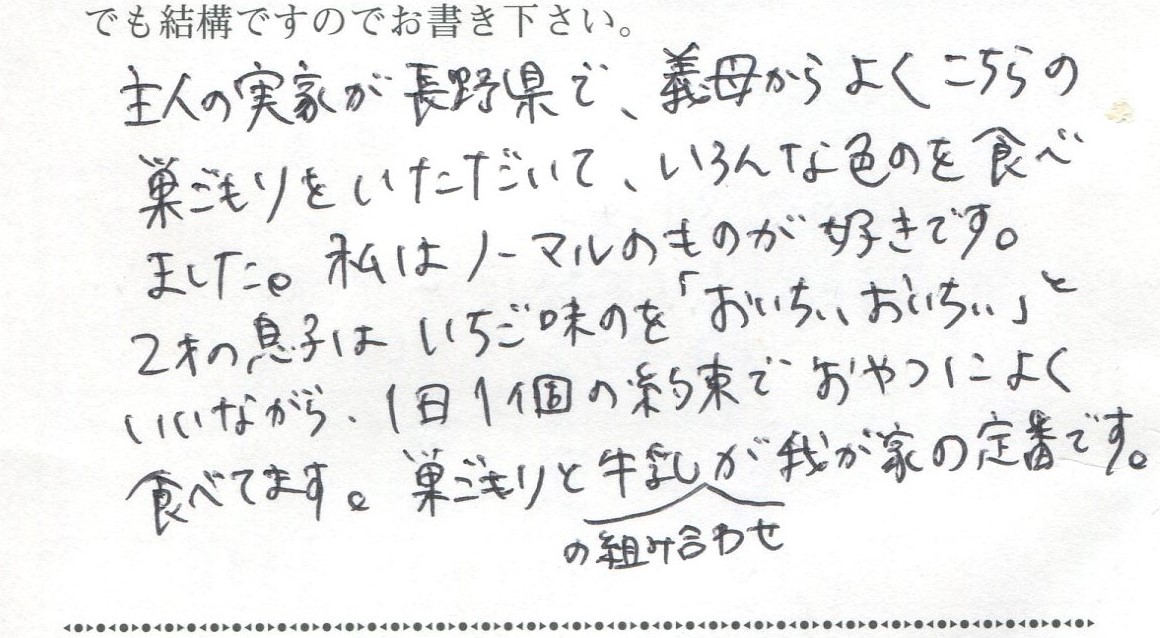 でも結構ですのでお書き下さい。
主人の実家が長野県で、義母からよくこちらの
巣ごもりをいただいて、いろんな色のを食べ
ました。私はノーマルのものが好きです。
2才の息子はいちご味のを「おいちぃ、おいちぃ」と
いいながら、1日1個の約束でおやつによく
食べてます。巣ごもりと牛乳が我が家の定番です。
の組み合わせ